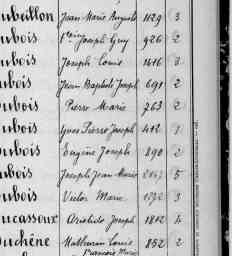 ubeillon Jean Marie Auguste 1629 3
ubois Joseph Guy 926 2
ubois Joseph Louis 1416 3
ubois Jean Baptiste Joseph 691 2
ubois Pierre Marie 763 2
ubois Yves Pierre Joseph 412 1
ubois Eugène Joseph 890 2
ubois Joseph Jean Marie 5
ubois Victor Marie 3
ucassoux Aristide Joseph 1812 4
uchêne Mathurin Louis 852 2
François Marie